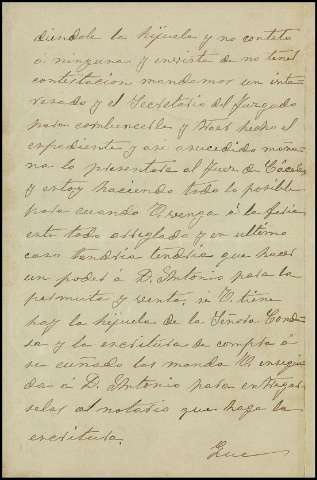 diendole la hijuela y no contestó
á ninguna y insiste de no tener
contestacion mandamos un inte-
resado y el Secretario del Juzgado
para combencerle y traer hecho el
expediente y asi a sucedido maña-
na lo presentara al Juez de Cáceres
y estoy haciendo todo lo posible
para cuando V. venga á la feria
este todo arreglado y en ultimo
caso tendria tendria que hacer
un poder á D. Antonio para la
permuta y venta, si V. tiene
hay la hijuela de la Señora Conde-
sa y la escritura de compra á
su cuñado las manda V. enseguí
da á D. Antonio para entregar
selas al notario que haga la
escritura.
Que